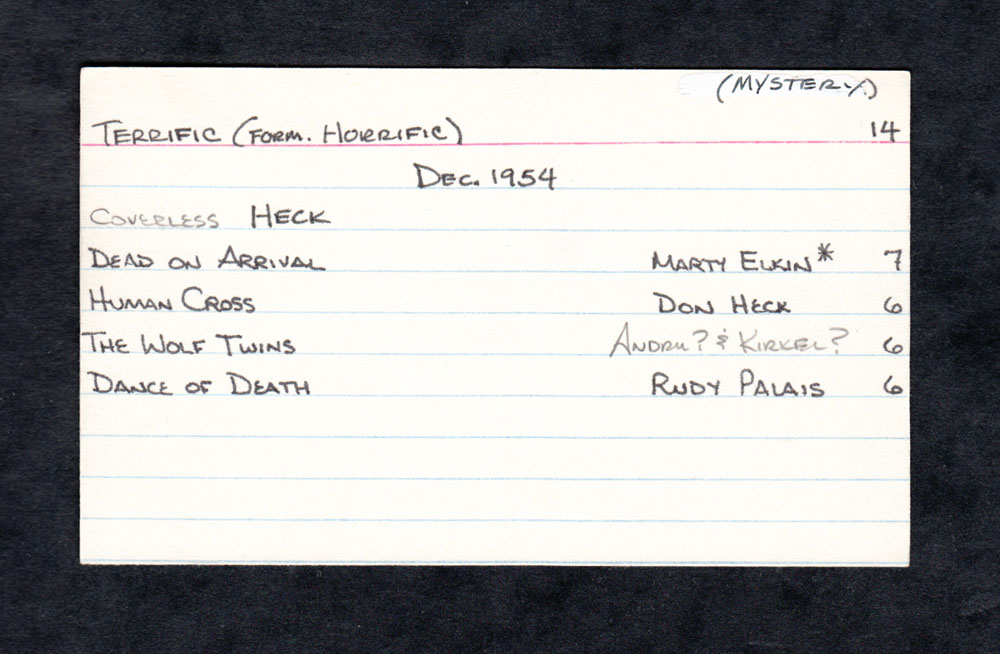 (MYSTERY)
TERRIFIC (FORM. HORRIFIC) 14
DEC. 1954
COVERLESS HECK
DEAD ON ARRIVAL MARTY ELKIN* 7
HUMAN CROSS DON HECK 6
THE WOLF TWINS ANDRU? & KIRKEL? 6
DANCE OF DEATH RUDY PALAIS 6